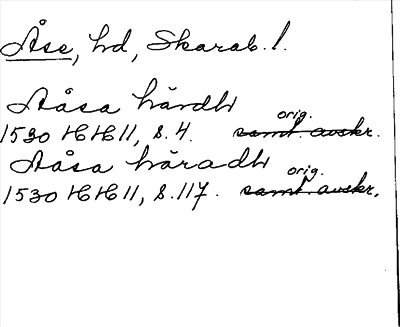 Åse, hd, Skarab. l.
Aåsa härdh
orig.
1530 HH 11, s. 4. samt. avskr.
Aåsa häradh
orig.
1530 HH 11, s. 117. samt. avskr.